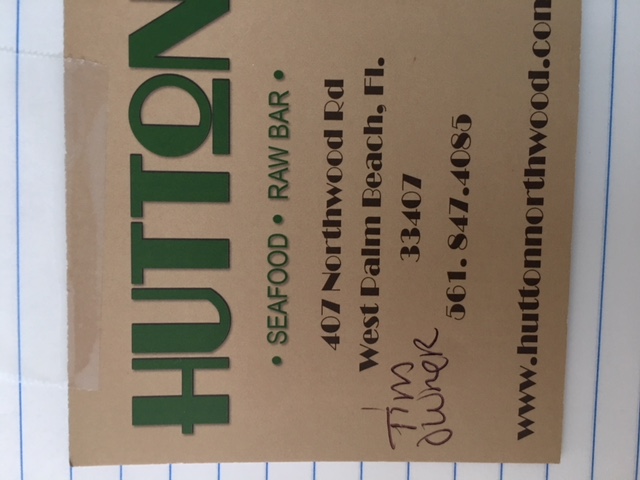 HUTTON
• SEAFOOD • RAW BAR •
407 Northwood Rd
West Palm Beach, Fl.
33407
561. 847.4085
Tim
owner
www.huttonnorthwood.com